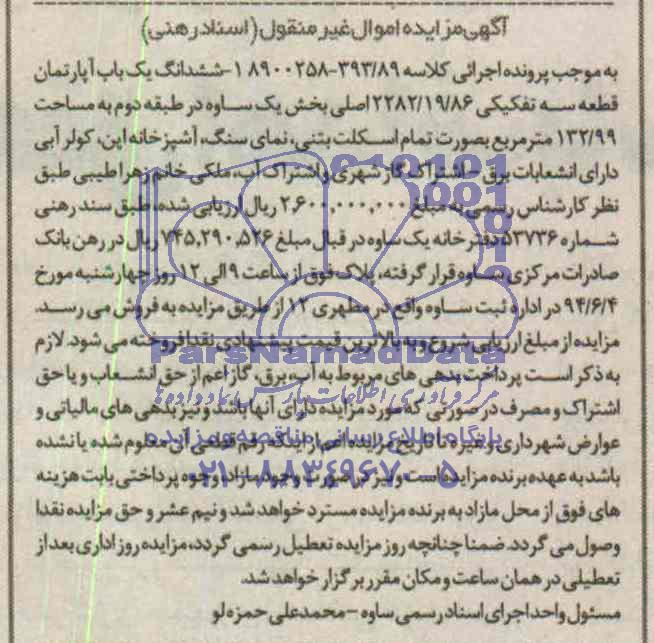 آگهی مزایده اموال غیر منقول (اسناد رهنی)
به موجب پرونده اجرائی کلاسه ۳۹۳/۸۹-۸۹۰۰۲۵۸ ۱- ششدانگ یک باب آپارتمان
قطعه سه تفکیکی ۲۲۸۲/۱۹/۸۶ اصلی بخش یک ساوه در طبقه دوم به مساحت
۱۳۲/۹۹ متر مربع بصورت تمام اسکلت بتنی، نمای سنگ، آشپزخانه اپن، کولر آبی
دارای انشعابات برق - اشتراک گاز شهری و اشتراک آب، ملکی خانم زهرا طیبی طبق
نظر کارشناس رسمی به مبلغ ۲,۶۰۰,۰۰۰,۰۰۰ ریال ارزیابی شده، طبق سند رهنی
شماره ۵۳۷۳۶ دفترخانه یک ساوه در قبال مبلغ ۷۴۵,۲۹۰,۵۲۶ ریال در رهن بانک
صادرات مرکزی ساوه قرار گرفته، پلاک فوق از ساعت ۹ الی ۱۲ روز چهارشنبه مورخ
۹۴/۶/۴ در اداره ثبت ساوه واقع در مطهری ۱۲ از طریق مزایده به فروش می رسد.
مزایده از مبلغ ارزیابی شروع و به بالاترین قیمت پیشنهادی نقدا فروخته می شود. لازم
به ذکر است پرداخت بدهی های مربوط به آب، برق، گاز اعم از حق انشعاب و یا حق
اشتراک و مصرف در صورتی که مورد مزایده دارای آنها باشد و نیز بدهی های مالیاتی و
عوارض شهرداری و غیره تا تاریخ مزایده اعم از اینکه رقم قطعی آن معلوم شده یا نشده
باشد به عهده برنده مزایده است و نیز در صورت وجود مازاد وجوه پرداختی بابت هزینه
های فوق از محل مازاد به برنده مزایده مسترد خواهد شد و نیم عشر و حق مزایده نقدا
وصول می گردد. ضمنا چنانچه روز مزایده تعطیل رسمی گردد، مزایده روز اداری بعد از
تعطیلی در همان ساعت و مکان مقرر برگزار خواهد شد.
مسئول واحد اجرای اسناد رسمی ساوه - محمدعلی حمزه لو
ParsNamadData
مرکز فرآوری اطلاعات پارس نماد داده ها
پایگاه اطلاع رسانی مناقصه و مزایده
۰۲۱-۸۸۳۴۹۶۷۰-۵